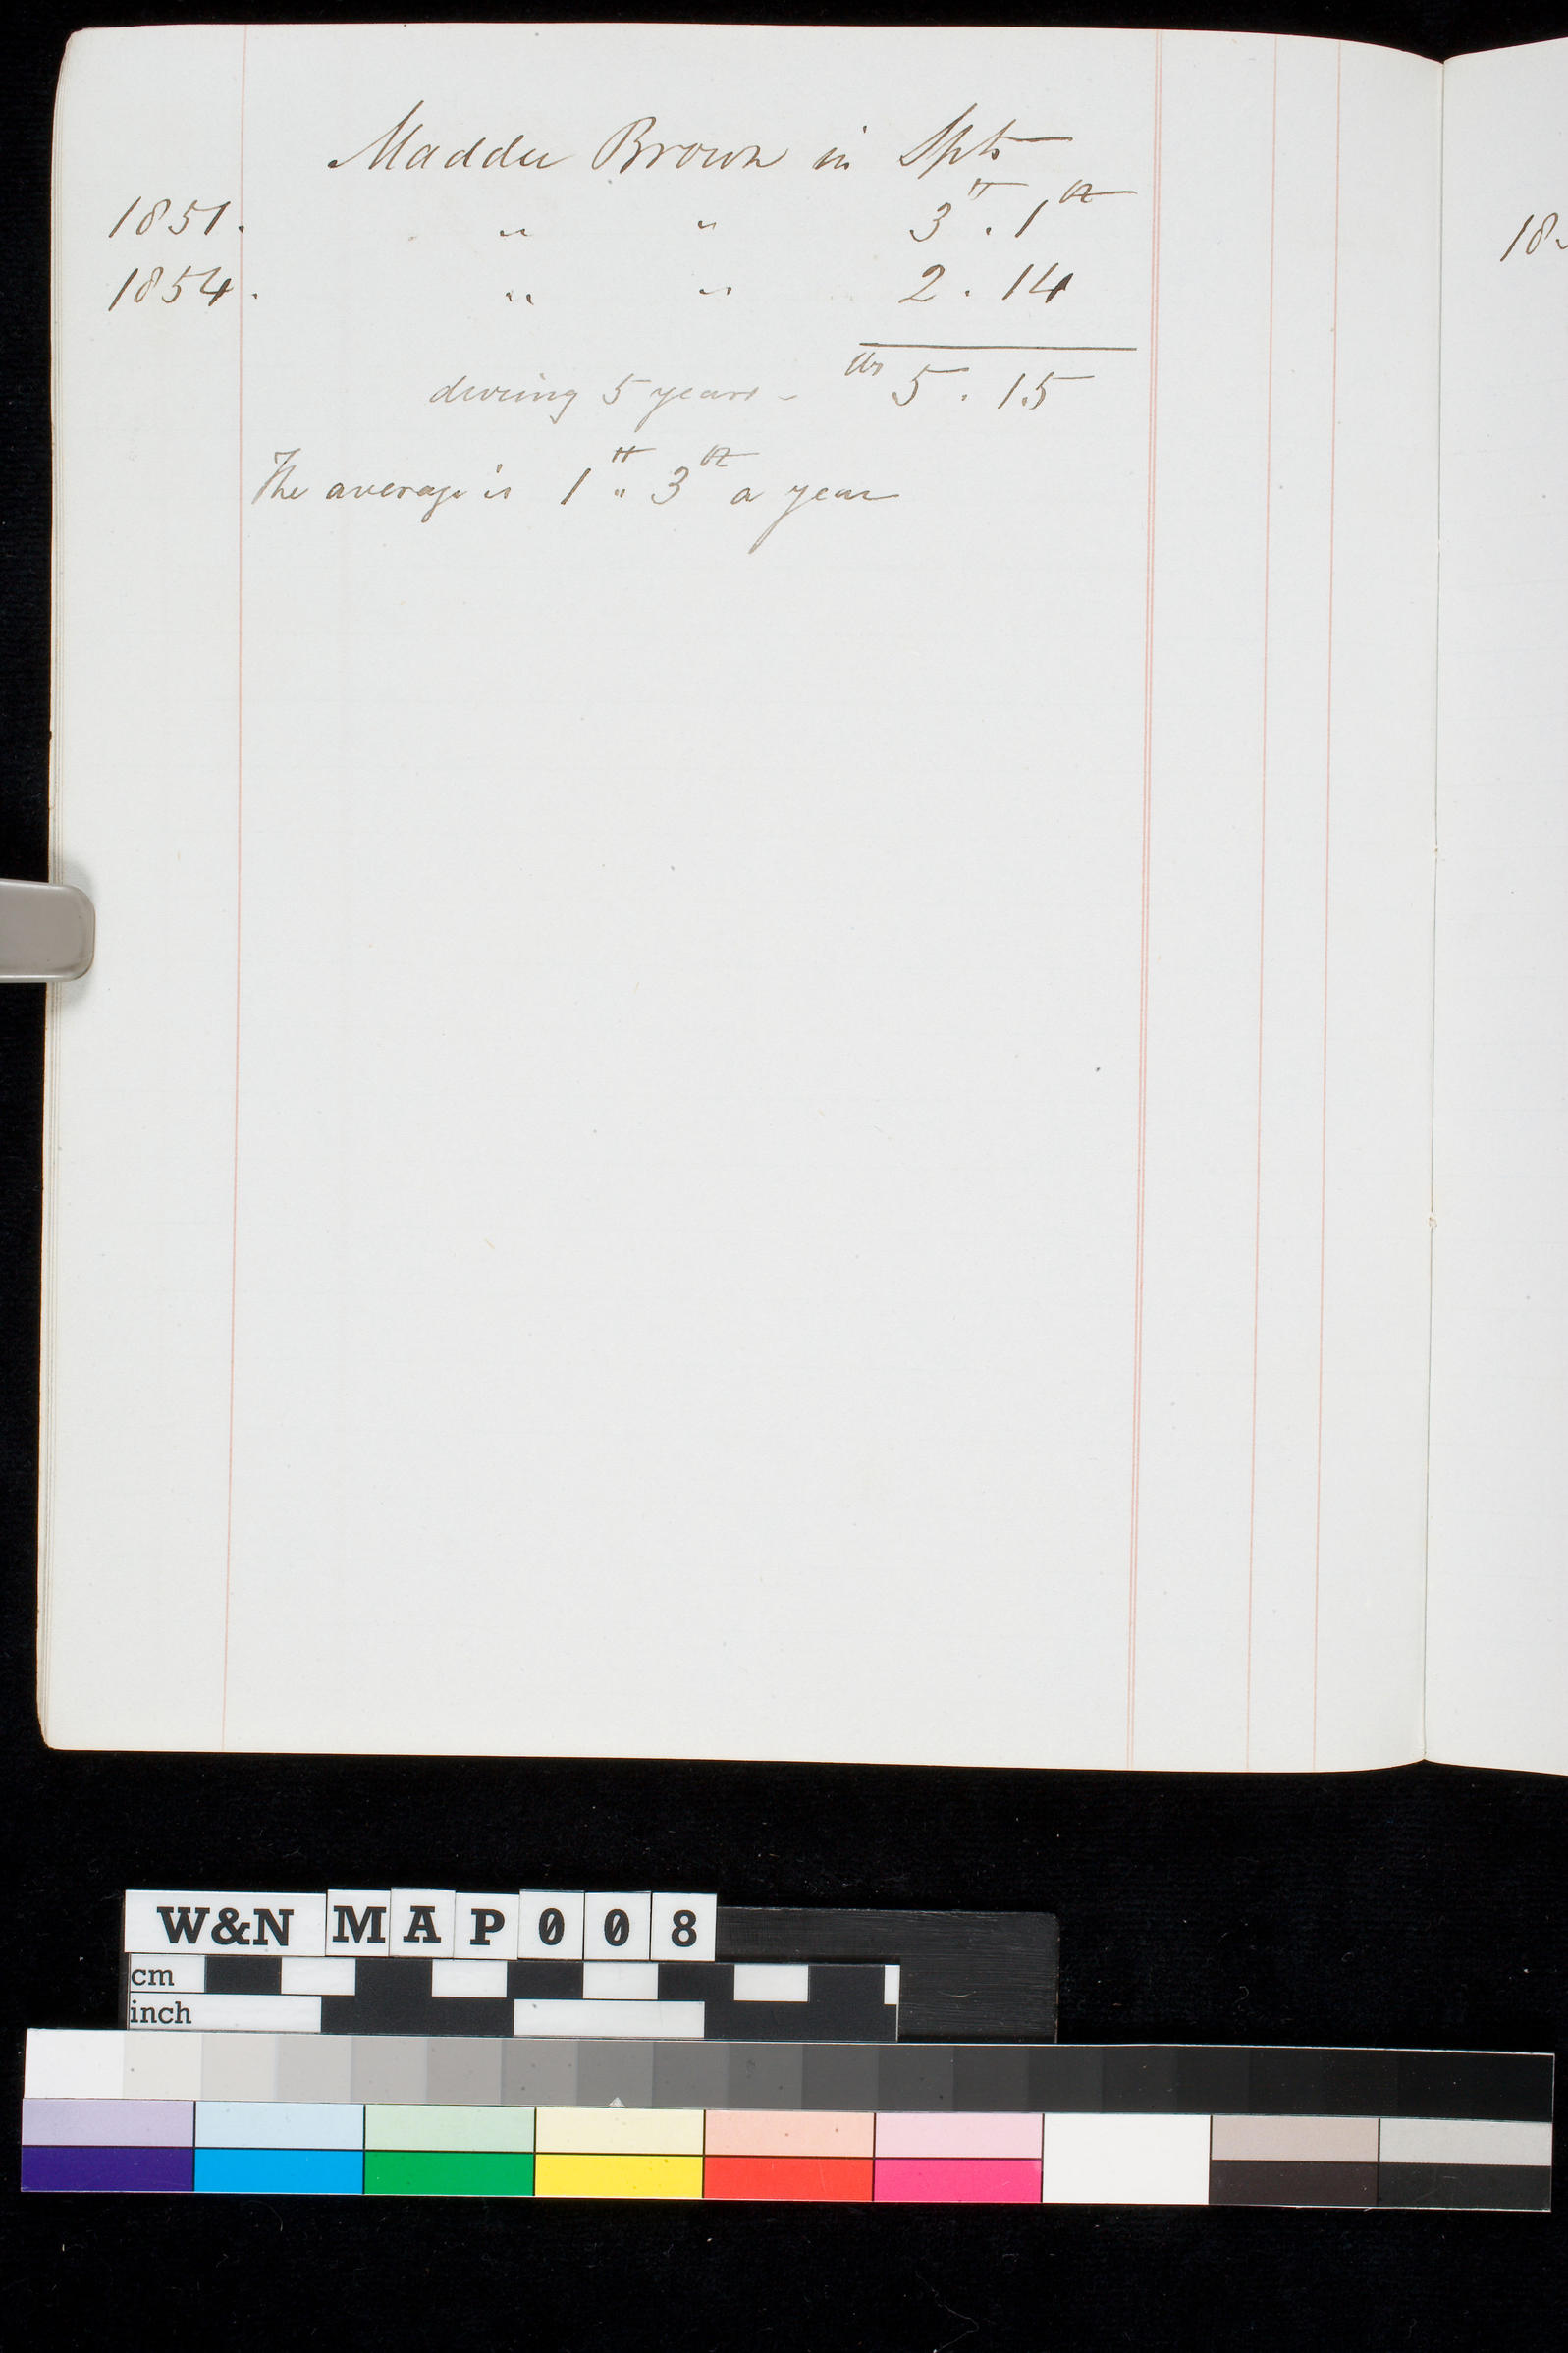 Madder Brown in Spts
1851. " " 3 lb. 1 oz
1854. " " 2 . 14
during 5 years - lbs 5 . 15
The average is 1 lb " 3 oz a year
18
W&N MAP008
cm
inch